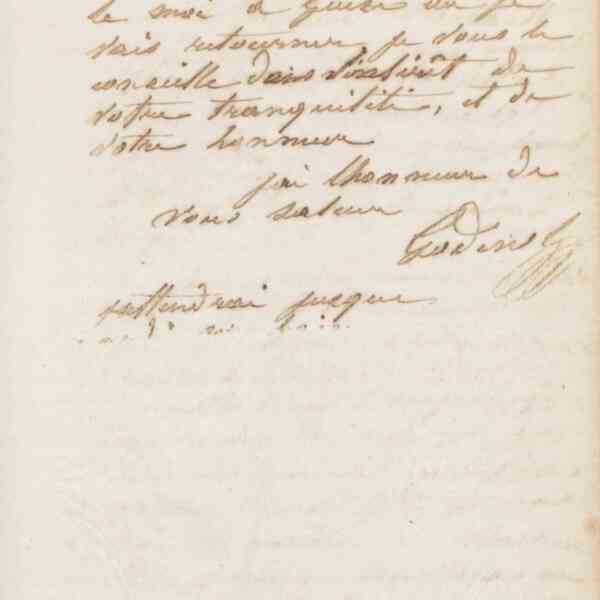 le moi a Guise ou je
vais retourner je vous le
conseille dans l'intérêt de
votre tranquilité, et de
votre honneur
j'ai l'honneur de
vous saluer
Godin
j'attendrai jusque